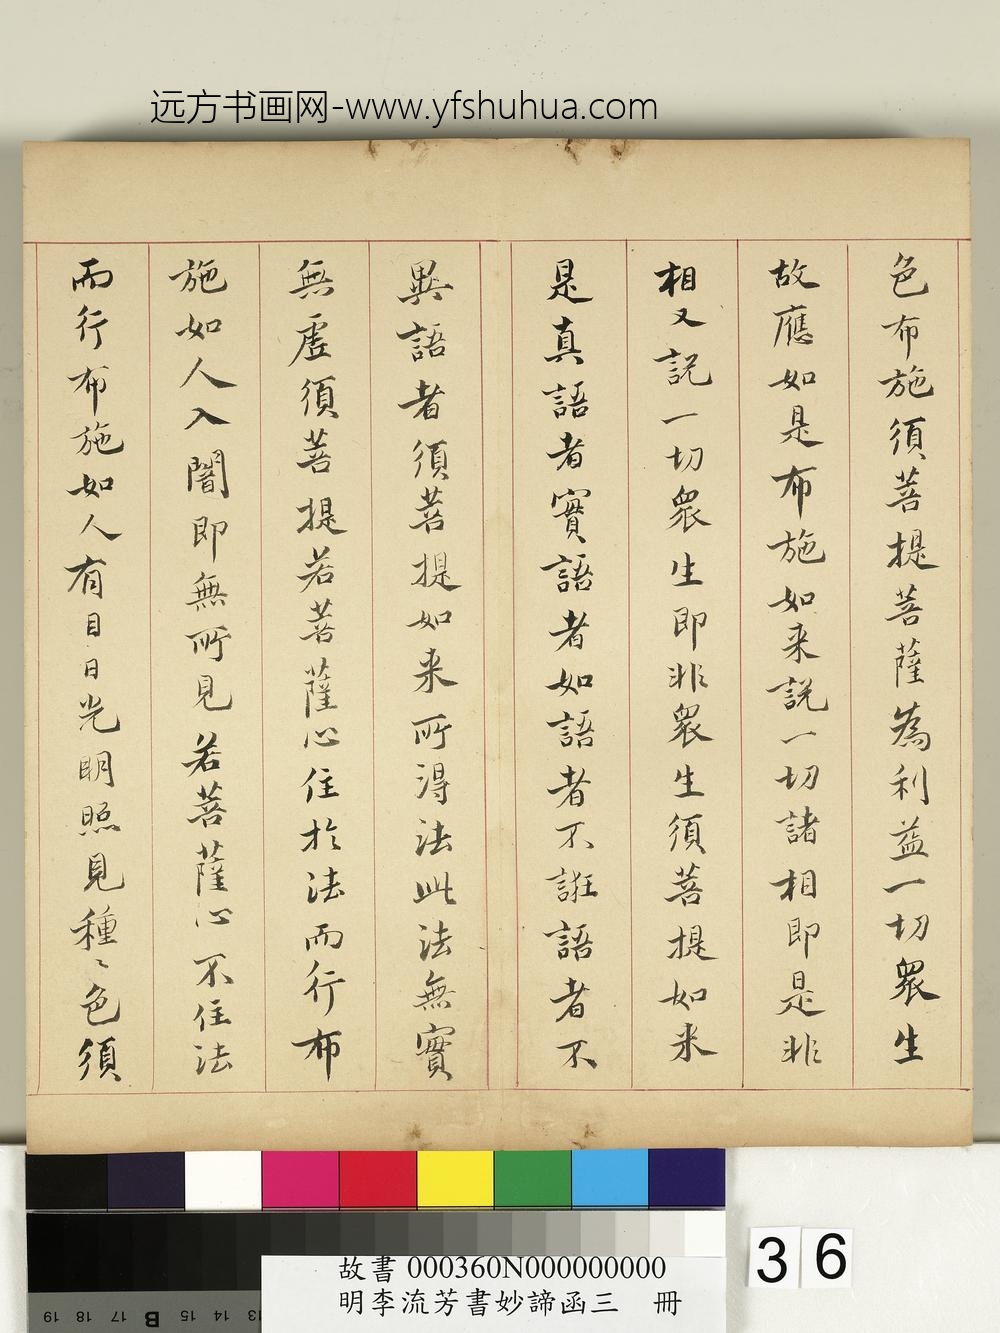 远方书画网-www.yfshuhua.com
色布施須菩提菩薩為利益一切眾生
故應如是布施如来說一切諸相即是非
相又說一切眾生即非眾生須菩提如来
是真語者實語者如語者不誑語者不
異語者須菩提如来所得法此法無實
無虛須菩提若菩薩心住於法而行布
施如人入闇即無所見若菩薩心不住法
而行布施如人有目日光明照見種〻色須
36
故書000360N000000000
明李流芳書妙諦函三 冊
19 18 17 B 15 14 13